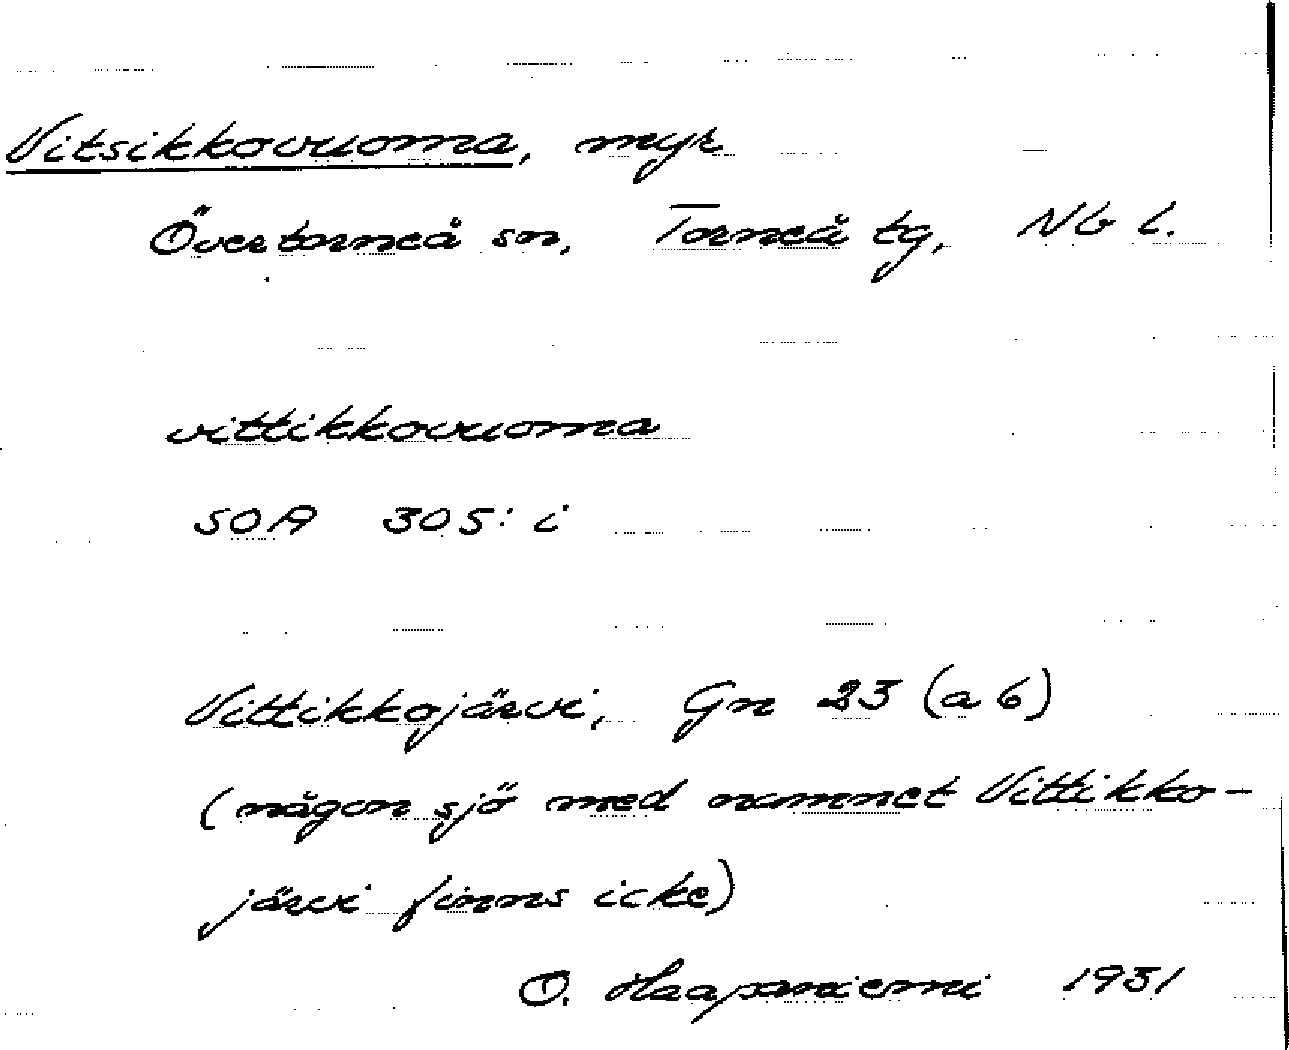 Vitsikkovuoma, myr
Övertorneå sn, Torneå tg, Nb l.
vittikkovuoma
SOA 305: i
Vittikkojärvi, Gn 23 (a 6)
(någon sjö med namnet Vittikko-
järvi finns icke)
O. Haapaniemi 1931